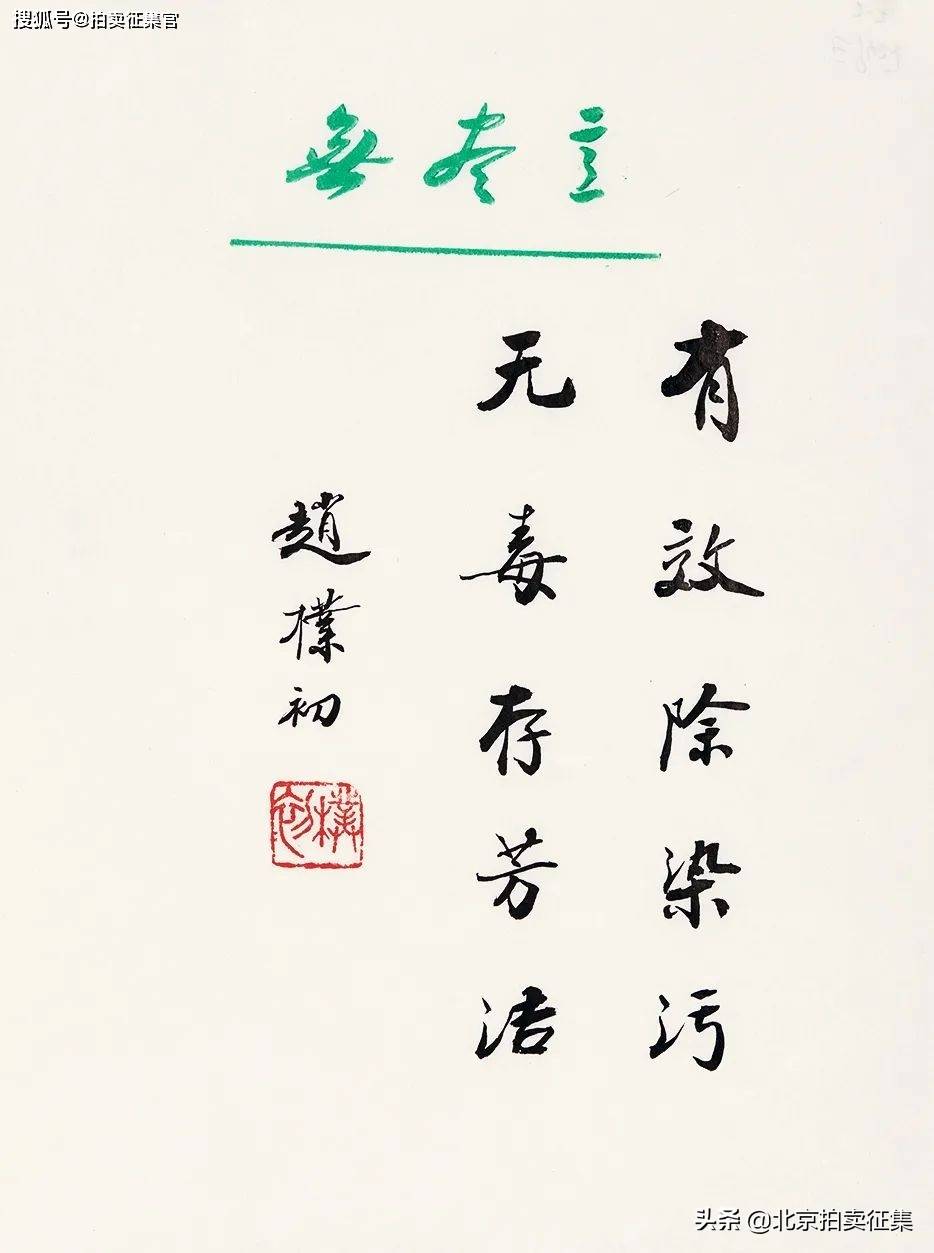 搜狐号@拍卖征集官
無尽意
有效除染污
无毒存芳洁
趙樸初
樸初
头杀 @北京拍卖征集